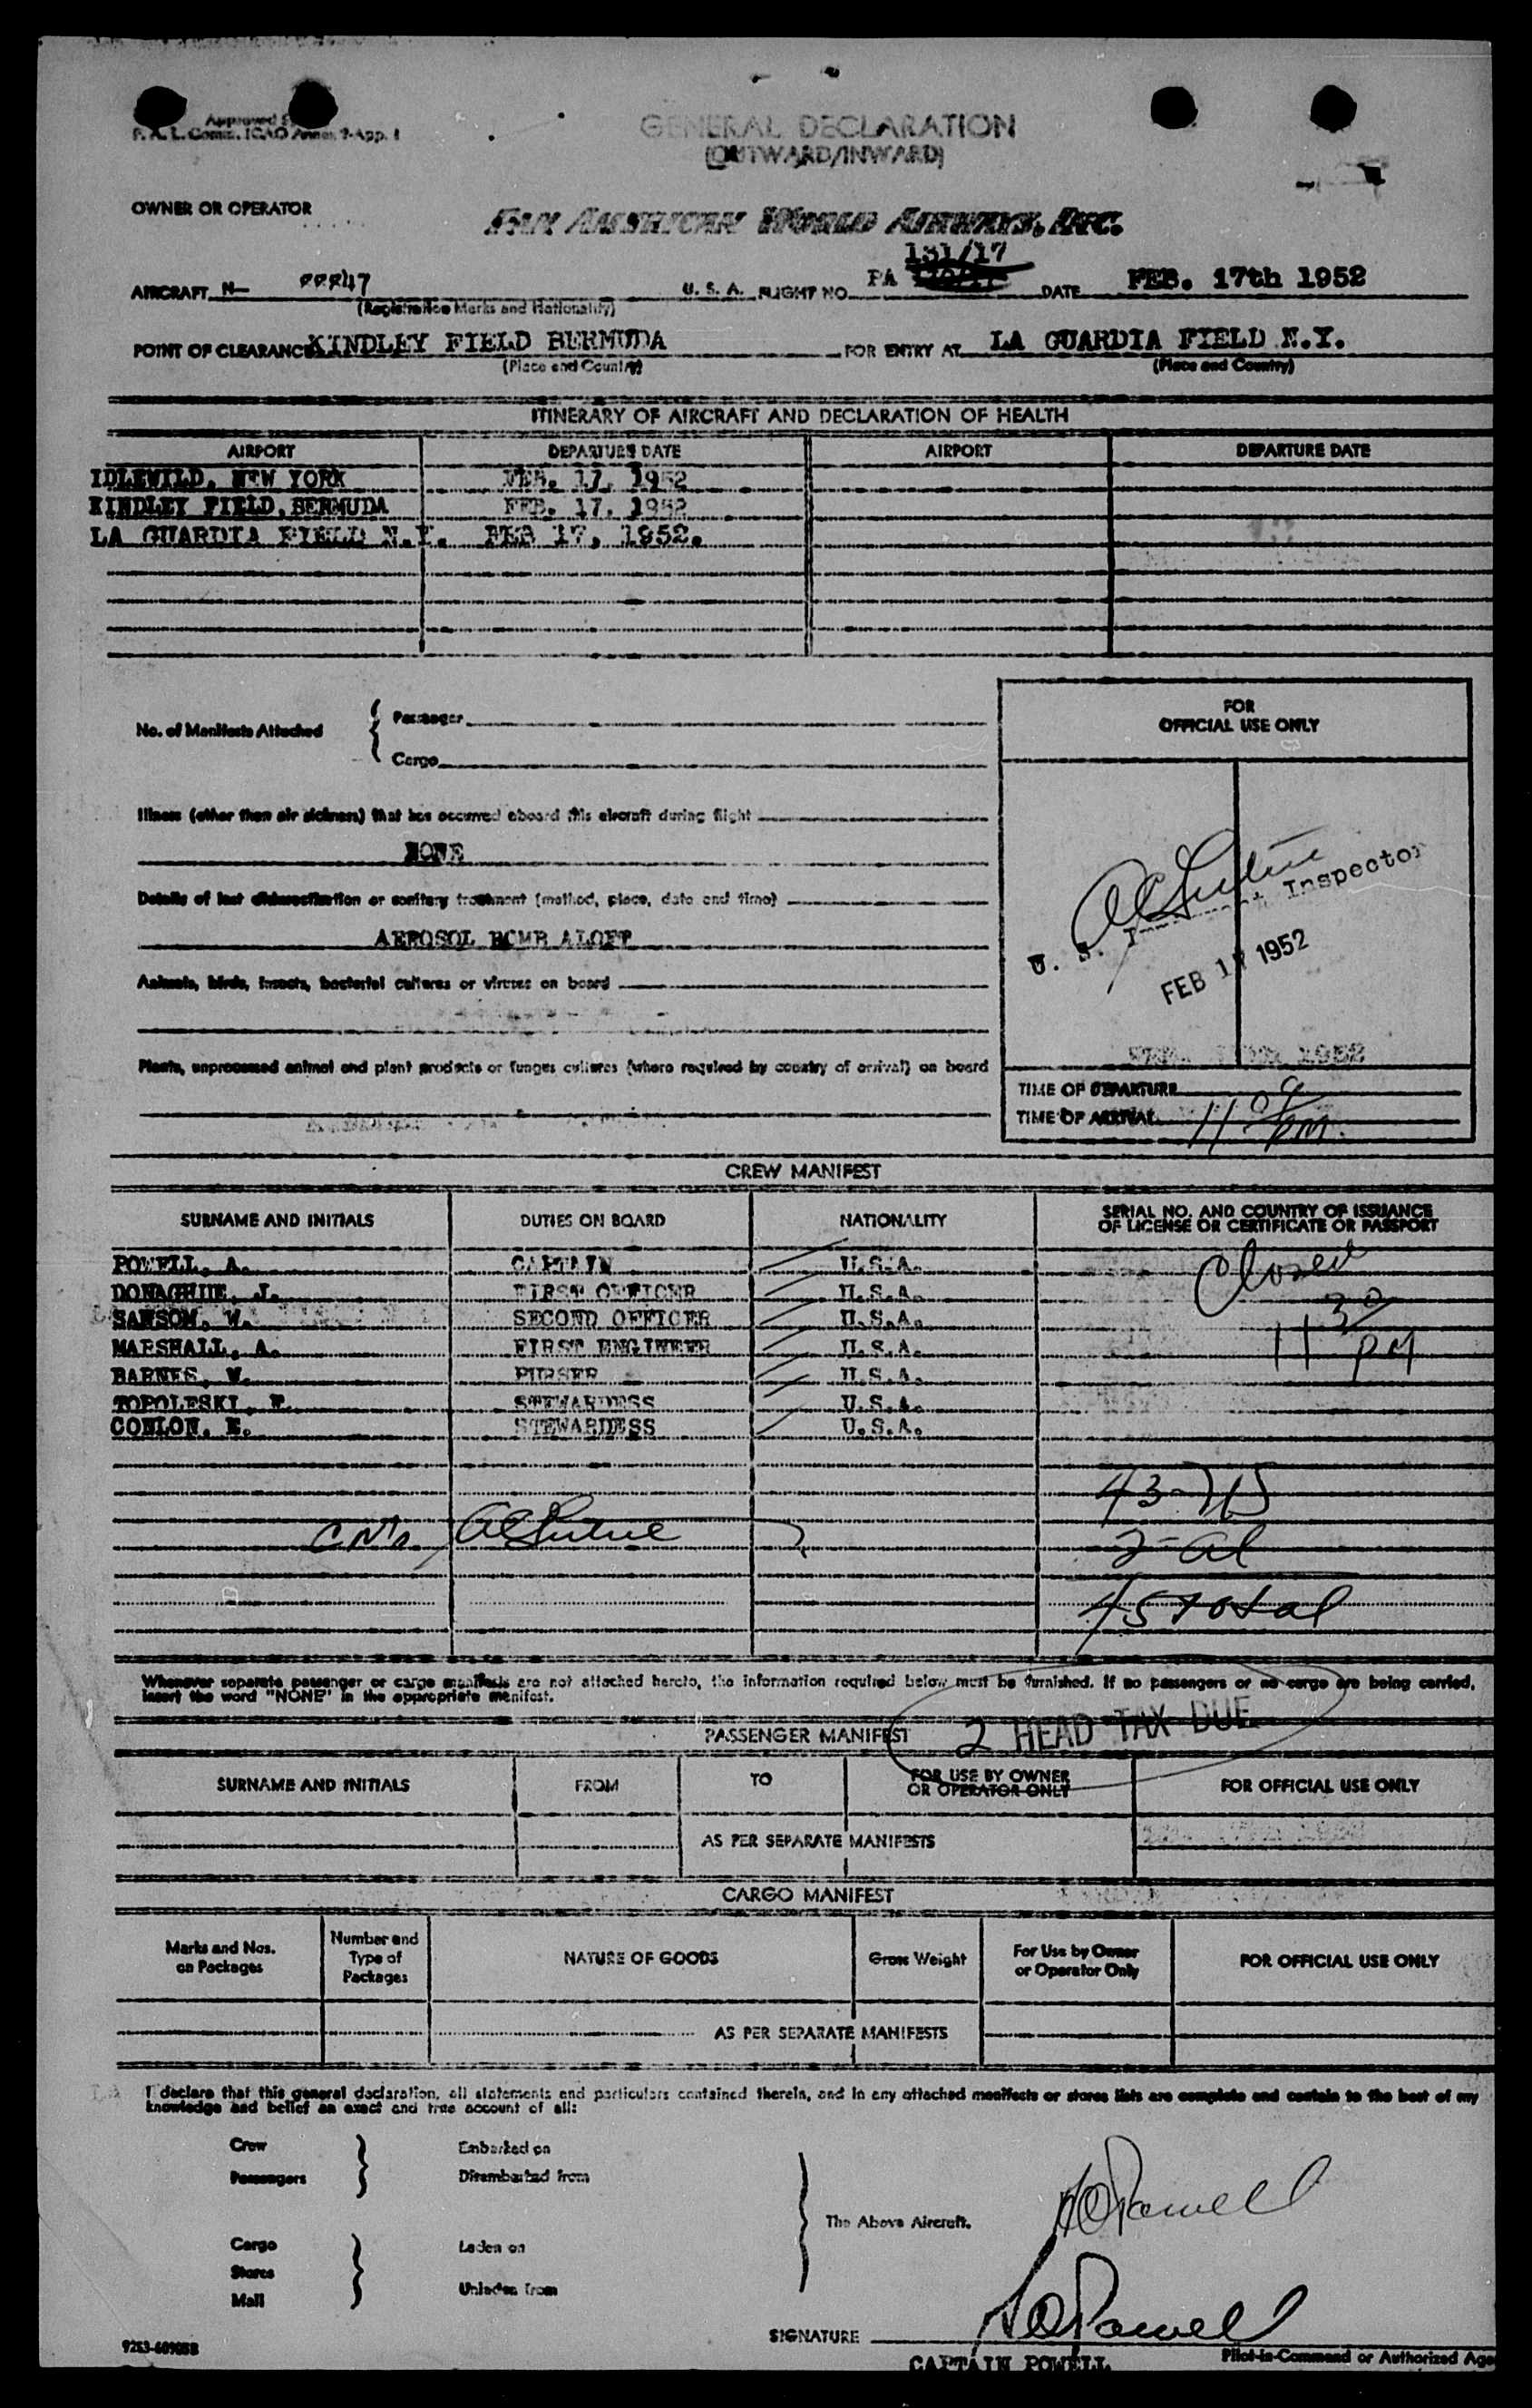 Approved
F. A. L. Comm. ICAO Annex 9-App. 1
GENERAL DECLARATION
(OUTWARD/INWARD)
OWNER OR OPERATOR
PAN AMERICAN WORLD AIRWAYS, INC.
131/17
AIRCRAFT N- U. S. A. FLIGHT NO. PA DATE FEB. 17th 1952
(Registration Marks and Nationality)
POINT OF CLEARANCE KINDLEY FIELD BERMUDA FOR ENTRY AT LA GUARDIA FIELD N.Y.
(Place and Country) (Place and Country)
ITINERARY OF AIRCRAFT AND DECLARATION OF HEALTH
AIRPORT DEPARTURE DATE AIRPORT DEPARTURE DATE
IDLEWILD, NEW YORK FEB. 17, 1952
KINDLEY FIELD, BERMUDA FEB. 17, 1952
LA GUARDIA FIELD N.Y. FEB 17, 1952.
FOR
OFFICIAL USE ONLY
No. of Manifests Attached { Passenger
Cargo
Illness (other than air sickness) that has occurred aboard this aircraft during flight
NONE
Details of last disinsectization or sanitary treatment (method, place, date and time)
AEROSOL BOMB ALOFT
U. S. Immigrant Inspector
FEB 17 1952
Animals, birds, insects, bacterial cultures or viruses on board
1952
Plants, unprocessed animal and plant products or fungus cultures (where required by country of arrival) on board
TIME OF DEPARTURE
TIME OF ARRIVAL 11 09 PM.
CREW MANIFEST
SURNAME AND INITIALS DUTIES ON BOARD NATIONALITY SERIAL NO. AND COUNTRY OF ISSUANCE
OF LICENSE OR CERTIFICATE OR PASSPORT
POWELL, A. CAPTAIN U.S.A. Closed
DONAGHUE, J. FIRST OFFICER U.S.A.
SANSOM, W. SECOND OFFICER U.S.A. 11 30 PM
MARSHALL, A. FIRST ENGINEER U.S.A.
BARNES, W. PURSER U.S.A.
TOPOLESKI, F. STEWARDESS U.S.A.
CONLON, E. STEWARDESS U.S.A.
43-US
2-al
45 total
Whenever separate passenger or cargo manifests are not attached hereto, the information required below must be furnished. If no passengers or no cargo are being carried,
insert the word "NONE" in the appropriate manifest.
2 HEAD TAX DUE
PASSENGER MANIFEST
SURNAME AND INITIALS FROM TO FOR USE BY OWNER
OR OPERATOR ONLY FOR OFFICIAL USE ONLY
AS PER SEPARATE MANIFESTS
CARGO MANIFEST
Marks and Nos.
on Packages Number and
Type of
Packages NATURE OF GOODS Gross Weight For Use by Owner
or Operator Only FOR OFFICIAL USE ONLY
AS PER SEPARATE MANIFESTS
I declare that this general declaration, all statements and particulars contained therein, and in any attached manifests or stores lists are complete and contain to the best of my
knowledge and belief an exact and true account of all:
Crew Embarked on
Passengers Disembarked from
The Above Aircraft.
Cargo Laden on
Stores
Mail Unladen from
SIGNATURE
CAPTAIN POWELL Pilot-in-Command or Authorized Age